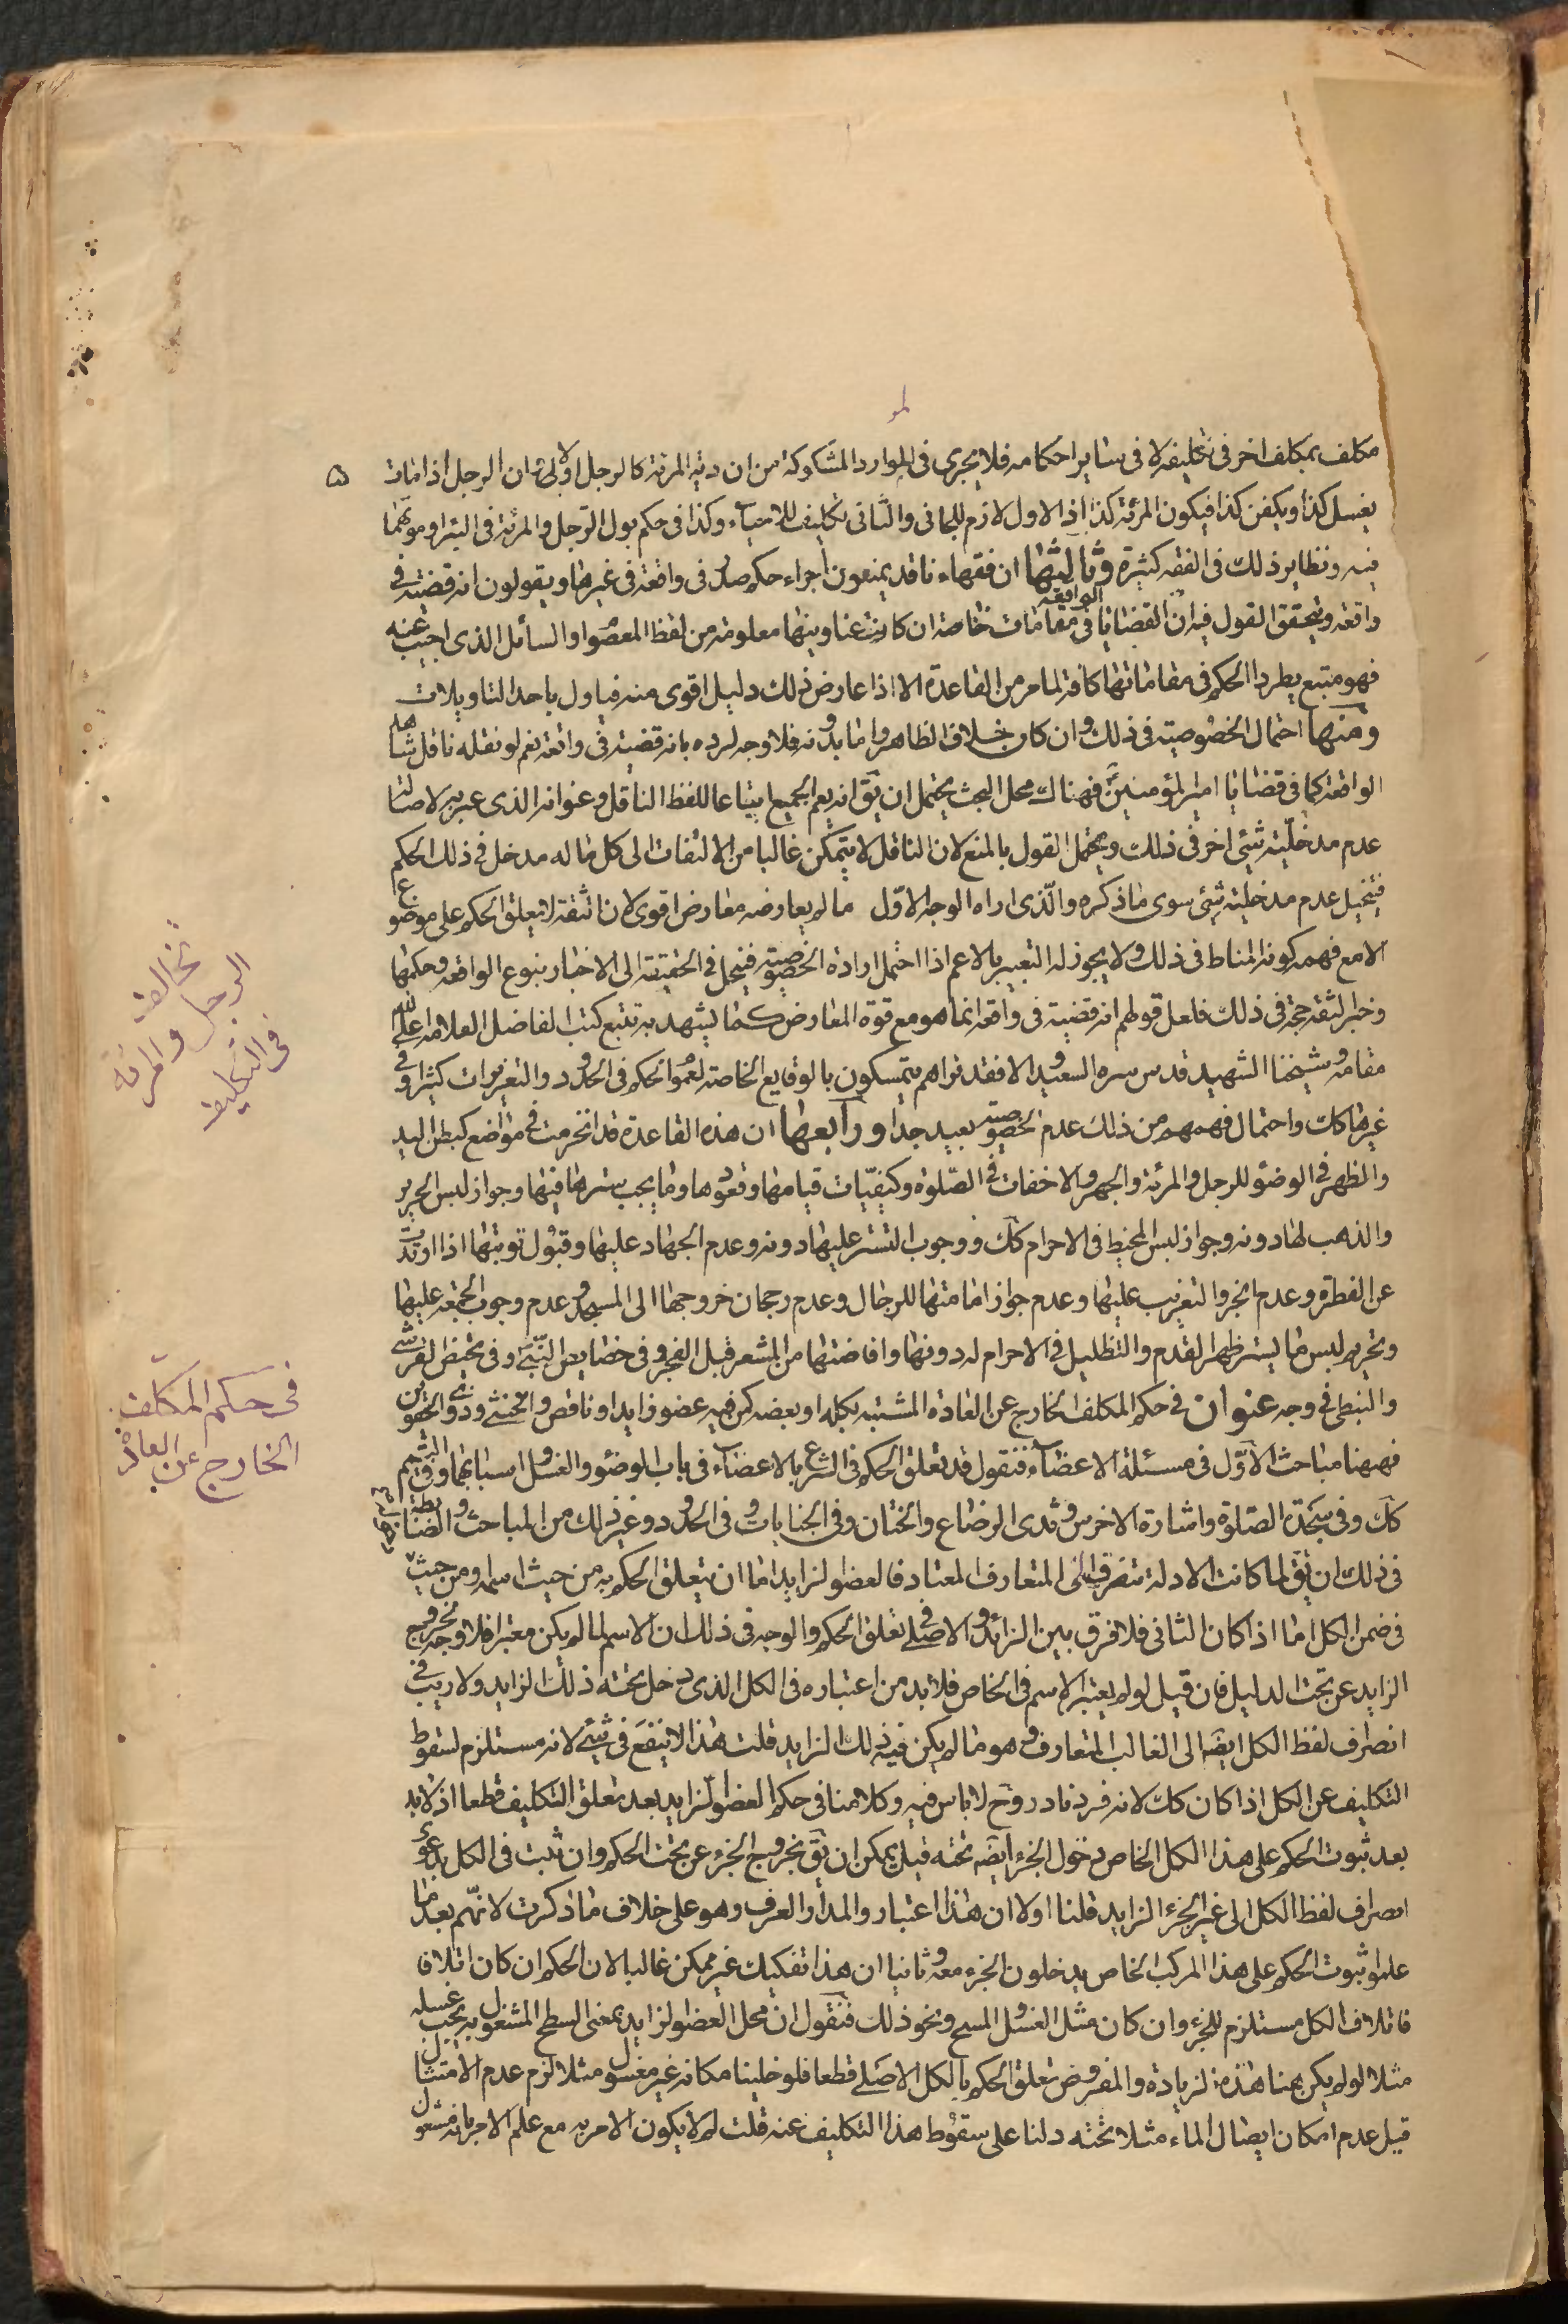 ۵
مكلف بمكلف اخر فى تكليفه لا فى ساير احكامه فلا يجرى فى الموارد المشكوكة من ان دية المرئة كالرجل اولا بخ ان الرجل اذا مات
يغسل كذا ويكفن كذا فيكون المرئة كذا اذ الاول لازم للجانى والثانى تكليف للاحياء وكذا فى حكم بول الرجل والمرئة فى البئر او موتهما
فيه ونظاير ذلك فى الفقه كثيرة وثالثها ان فقهاء نا قد يمنعون اجراء حكم صدر فى واقعة فى غيرها ويقولون انه قضية فى
واقعة وتحقق القول فيه ان القضايا الواقعة فى مقامات خاصة ان كانت عناوينها معلومة من لفظ المعصوم او السائل الذى اجيب عنه
فهو متبع يطرد الحكم فى مقاماتها كافة لما مر من القاعدة الا اذا عارض ذلك دليل اقوى منه فياول باحد التاويلات
ومنها احتمال الخصوصية فى ذلك وان كان خلاف الظاهر واما بدونه فلا وجه لرده بانه قضية فى واقعة نعم لو نقله ناقل شاهد
الواقعة كما فى قضايا امير المؤمنين فهناك محل البحث يحتمل ان يق انه يعم الجميع اتباعا للفظ الناقل وعنوانه الذى عبر به لاصالة
عدم مدخلية شيئ اخر فى ذلك ويحتمل القول بالمنع لان الناقل لا يتمكن غالبا من الالتفات الى كل ما له مدخل فى ذلك الحكم
فيتخيل عدم مدخلية شيئ سوى ما ذكره والّذى اراه الوجه الاوّل ما لم يعارضه معارض اقوى لان الثقة لا يعلق الحكم على موضوع
الا مع فهمه كونه المناط فى ذلك ولا يجوز له التعبير بالاعم اذا احتمل ارادة الخصوصية فينحل فى الحقيقة الى الاخبار بنوع الواقعة وحكمها
وخبر الثقة حجة فى ذلك فلعل قولهم انه قضية فى واقعة انما هو مع قوة المعارض كما يشهد به تتبع كتب الفاضل العلامة اعلى الله
مقامه وشيخنا الشهيد قدس سره السعيد والا فقد تراهم يتمسكون بالوقايع الخاصة لعموم الحكم فى الحدود والتعزيرات كثيرا وفى
غيرها كك واحتمال فهمهم من ذلك عدم الخصوصية بعيد جدا ورابعها ان هذه القاعدة قد انخرمت فى مواضع كبطن اليد
والظهر فى الوضؤ للرجل والمرئة والجهر والاخفات فى الصّلوة وكيفيّات قيامها وقعودها وما يجب سترها فيها وجواز لبس الحرير
والذهب لها دونه وجواز لبس المخيط فى الاحرام كك ووجوب التستر عليها دونه وعدم الجهاد عليها وقبول توبتها اذا ارتدت
عن الفطرة وعدم الجز والتغريب عليها وعدم جواز امامتها للرجال وعدم رجحان خروجها الى المسجد وعدم وجوب الجمعة عليها
وتحريم لبس ما يستر ظهر القدم والتظليل فى الاحرام له دونها وافاضتها من المشعر قبل الفجر وفى خصايص النّبى وفى تحيض القرشى
والنبطى فى وجه عنوان فى حكم المكلف الخارج عن العادة المشتبه بكله او بعضه كمن فيه عضو زايد او ناقص والخنثى وذى الحقوين
فههنا مباحث الاوّل فى مسئلة الاعضاء فنقول قد تعلق الحكم فى الشرع بالاعضاء فى باب الوضوء والغسل واسبابهما وفى التيمم
كك وفى سجدة الصّلوة واشارة الاخرس وثدى الرضاع والختان وفى الجنايات وفى الحدود وغير ذلك من المباحث والضابطة
فى ذلك ان يق لما كانت الادلة منصرفة الى المتعارف المعتاد فالعضو الزايد اما ان يتعلق الحكم به من حيث اسمه او من حيث
فى ضمن الكل اما اذا كان الثانى فلا فرق بين الزائد والاصلى فى تعلق الحكم والوجه فى ذلك ان الاسم لما لم يكن معتبرا فلا وجه لخروج
الزايد عن تحت الدليل فان قيل لو لم يعتبر الاسم فى الخاص فلا بد من اعتباره فى الكل الذى دخل تحته ذلك الزايد ولا ريب فى
انصراف لفظ الكل ايضا الى الغالب المتعارف وهو ما لم يكن فيه ذلك الزايد قلت هذا لا ينفع فى شيئ لانه مستلزم لسقوط
التكليف عن الكل اذا كان كك لانه فرد نادر وح لا باس فيه وكلامنا فى حكم العضو الزايد بعد تعلق التكليف قطعا اذ لا بد
بعد ثبوت الحكم على هذا الكل الخاص دخول الجزء ايضا تحته قيل يمكن ان يق بخروج الجزء عن تحت الحكم وان ثبت فى الكل بدعوى
انصراف لفظ الكل الى غير الجزء الزايد قلنا اولا ان هذا اعتبار والمدار العرف وهو على خلاف ما ذكرت لانّهم بعد ما
علموا ثبوت الحكم على هذا المركب الخاص يدخلون الجزء معه وثانيا ان هذا تفكيك غير ممكن غالبا لان الحكم ان كان اتلافا
فاتلاف الكل مستلزم للجزء وان كان مثل الغسل والمسح ونحو ذلك فنقول ان محل العضو الزايد بمعنى السطح المشغول به يجب غسله
مثلا لو لم يكن هنا هذه الزيادة والمفروض تعلق الحكم بالكل الاصلى قطعا فلو خلينا مكانه غير مغسول مثلا لزم عدم الامتثال
قيل عدم امكان ايصال الماء مثلا تحته دلنا على سقوط هذا التكليف عنه قلت لم لا يكون الامر به مع علم الامر بانه مشغول
تخالف
الرجل والمرئة
فى التكليف
فى حكم المكلف
الخارج عن العادة